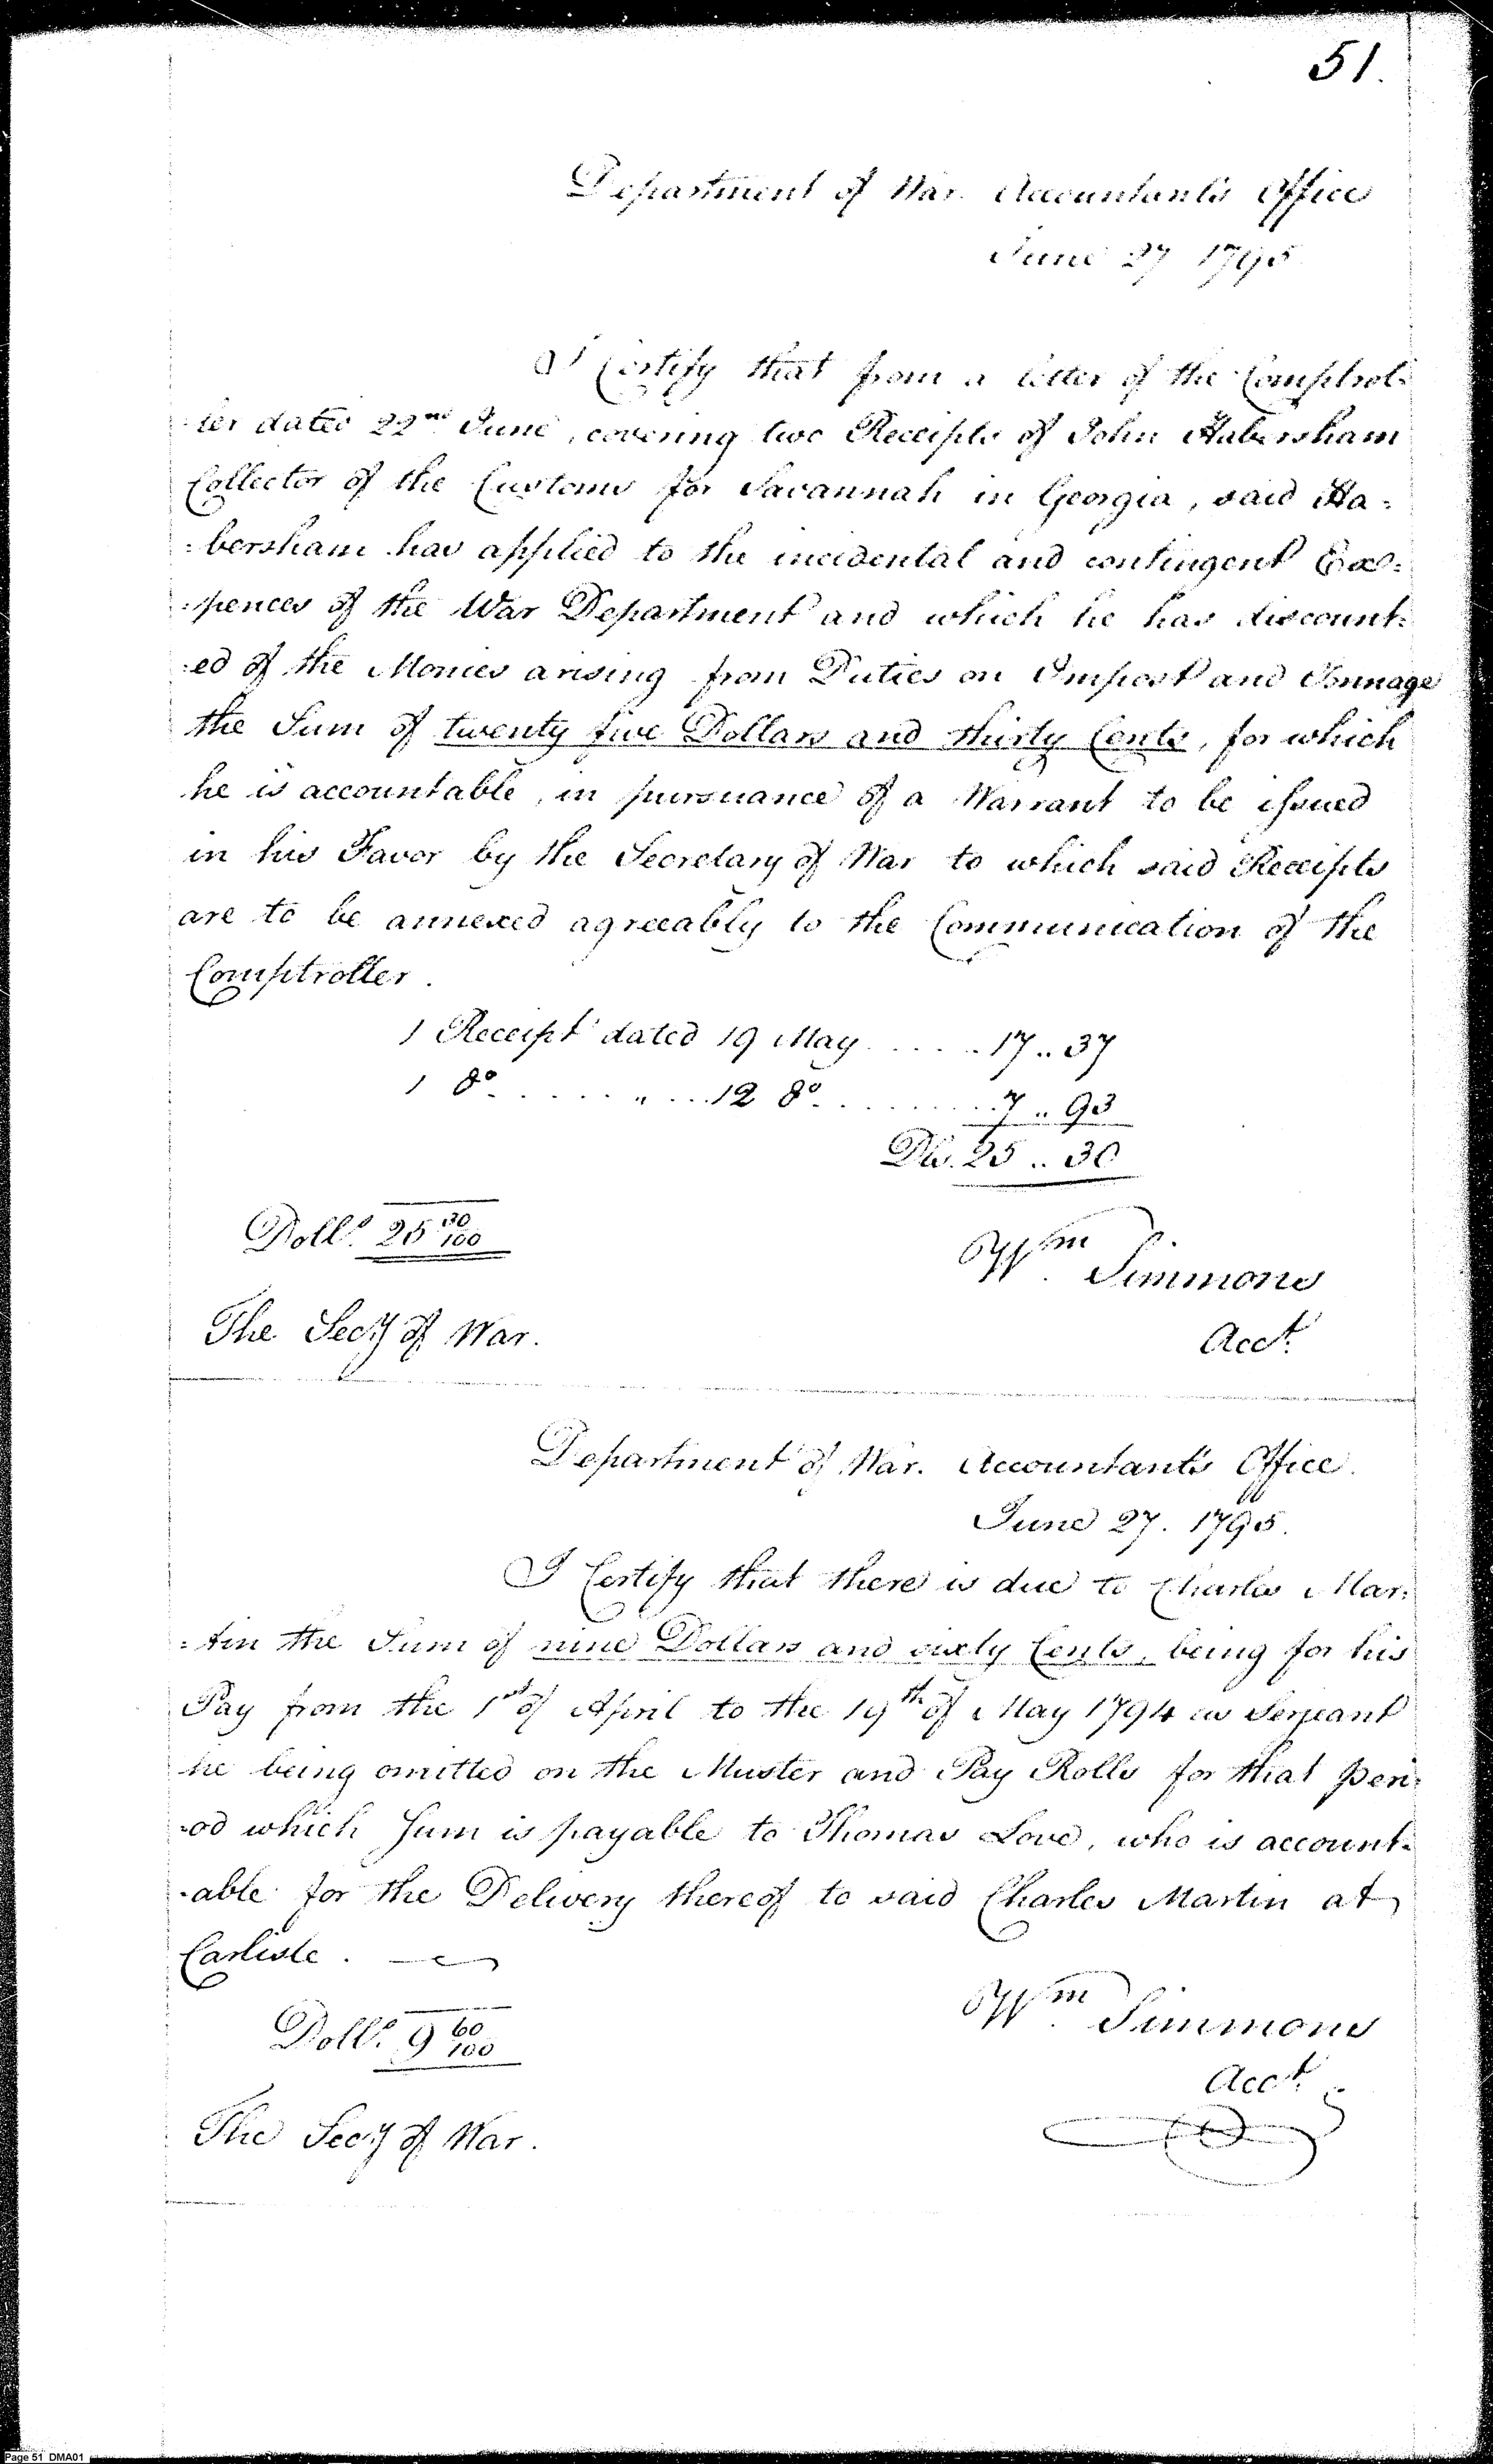 51.
Department of War. Accountant's Office
June 27 1795
I Certify that from a letter of the Comptrol=
=ler dated 22nd June, covering two Receipts of John Habersham
Collector of the Customs for Savannah in Georgia, said Ha=
=bersham has applied to the incidental and contingent Ex=
=pences of the War Department and which he has discount=
=ed of the Monies arising from Duties on Impost and Tonnage
the Sum of twenty five Dollars and thirty Cents, for which
he is accountable, in pursuance of a Warrant to be issued
in his Favor by the Secretary of War to which said Receipts
are to be annexed agreeably to the Communication of the
Comptroller.
1 Receipt dated 19 May ..... 17..37
1 do ..... " ... 12 do ........ 7..93
Dls. 25..30
Dolls. 25 30/100
Wm Simmons
The Secy of War.
Acct.
Department of War. Accountant's Office.
June 27. 1795.
I Certify that there is due to Charles Mar=
=tin the Sum of nine Dollars and sixty Cents, being for his
Pay from the 1st of April to the 19th of May 1794 as Serjeant
he being omitted on the Muster and Pay Rolls for that peri=
=od which Sum is payable to Thomas Love, who is account=
=able for the Delivery thereof to said Charles Martin at
Carlisle.
Wm Simmons
Dolls. 9 60/100
Acct.
The Secy of War.
Page 51 DMA01